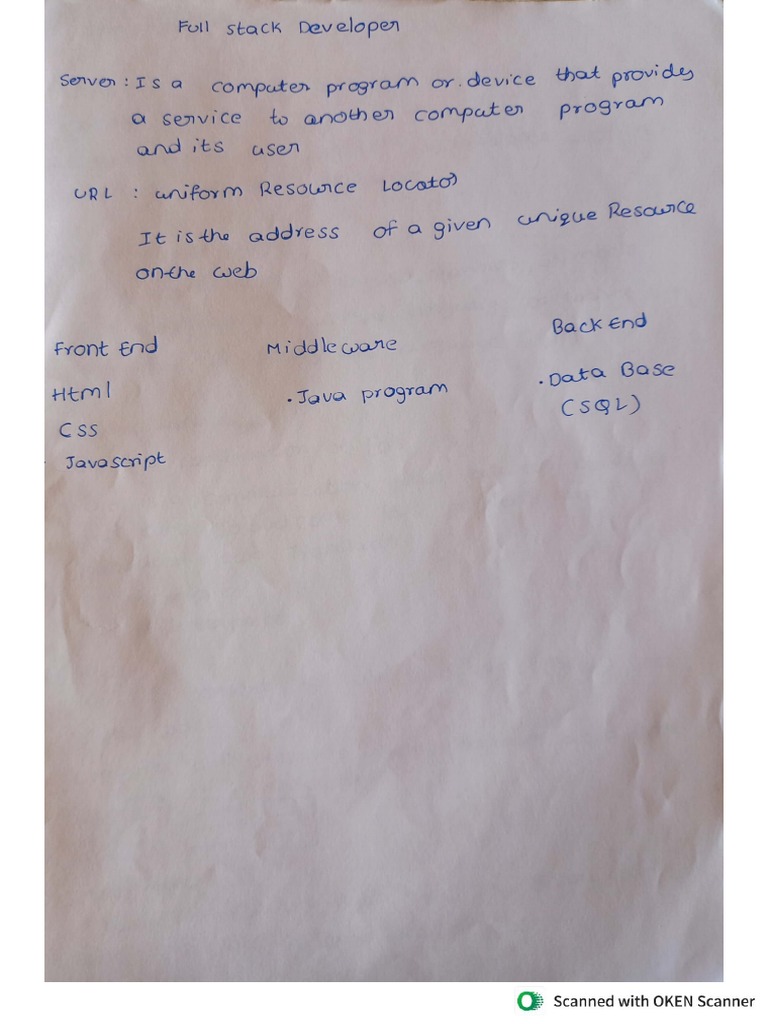 Full Stack Developer
Server : Is a computer program or. device that provides
a service to another computer program
and its user
URL : uniform Resource Locator
It is the address of a given unique Resource
on the web
Front End Middleware Back End
Html . Java program . Data Base
CSS (SQL)
Javascript
Scanned with OKEN Scanner